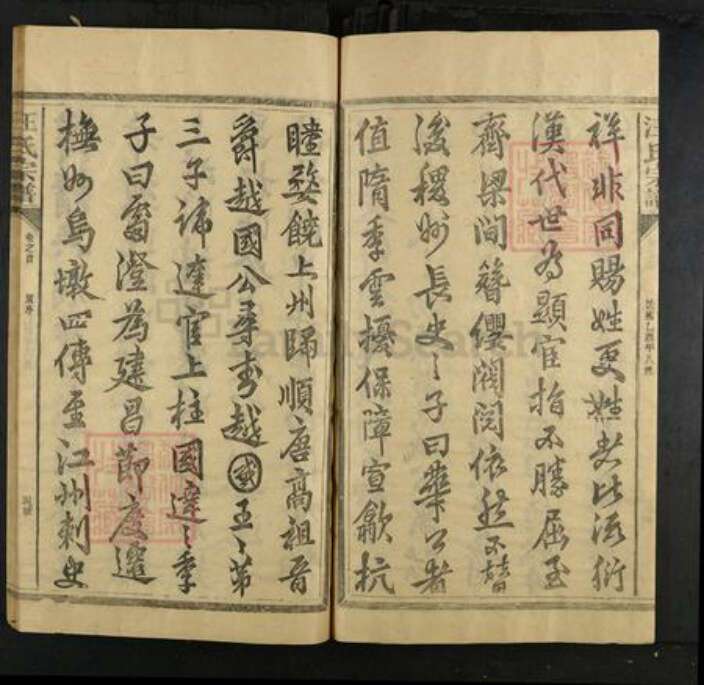 祥非同賜姓更姓者比派衍
漢代世為顯宦指不勝屈至
齊梁間簪纓閥閱依然不替
後稷州長史〻子曰華公者
值隋季雲擾保障宣歙杭
睦婺饒上州歸順唐高祖晉
爵越國公尋封越國王〻第
三子諱達官上柱國達〻季
子曰處澄為建昌節度遷
撫州烏墩四傳至江州刺史
汪氏宗譜
卷之首
汪氏宗譜